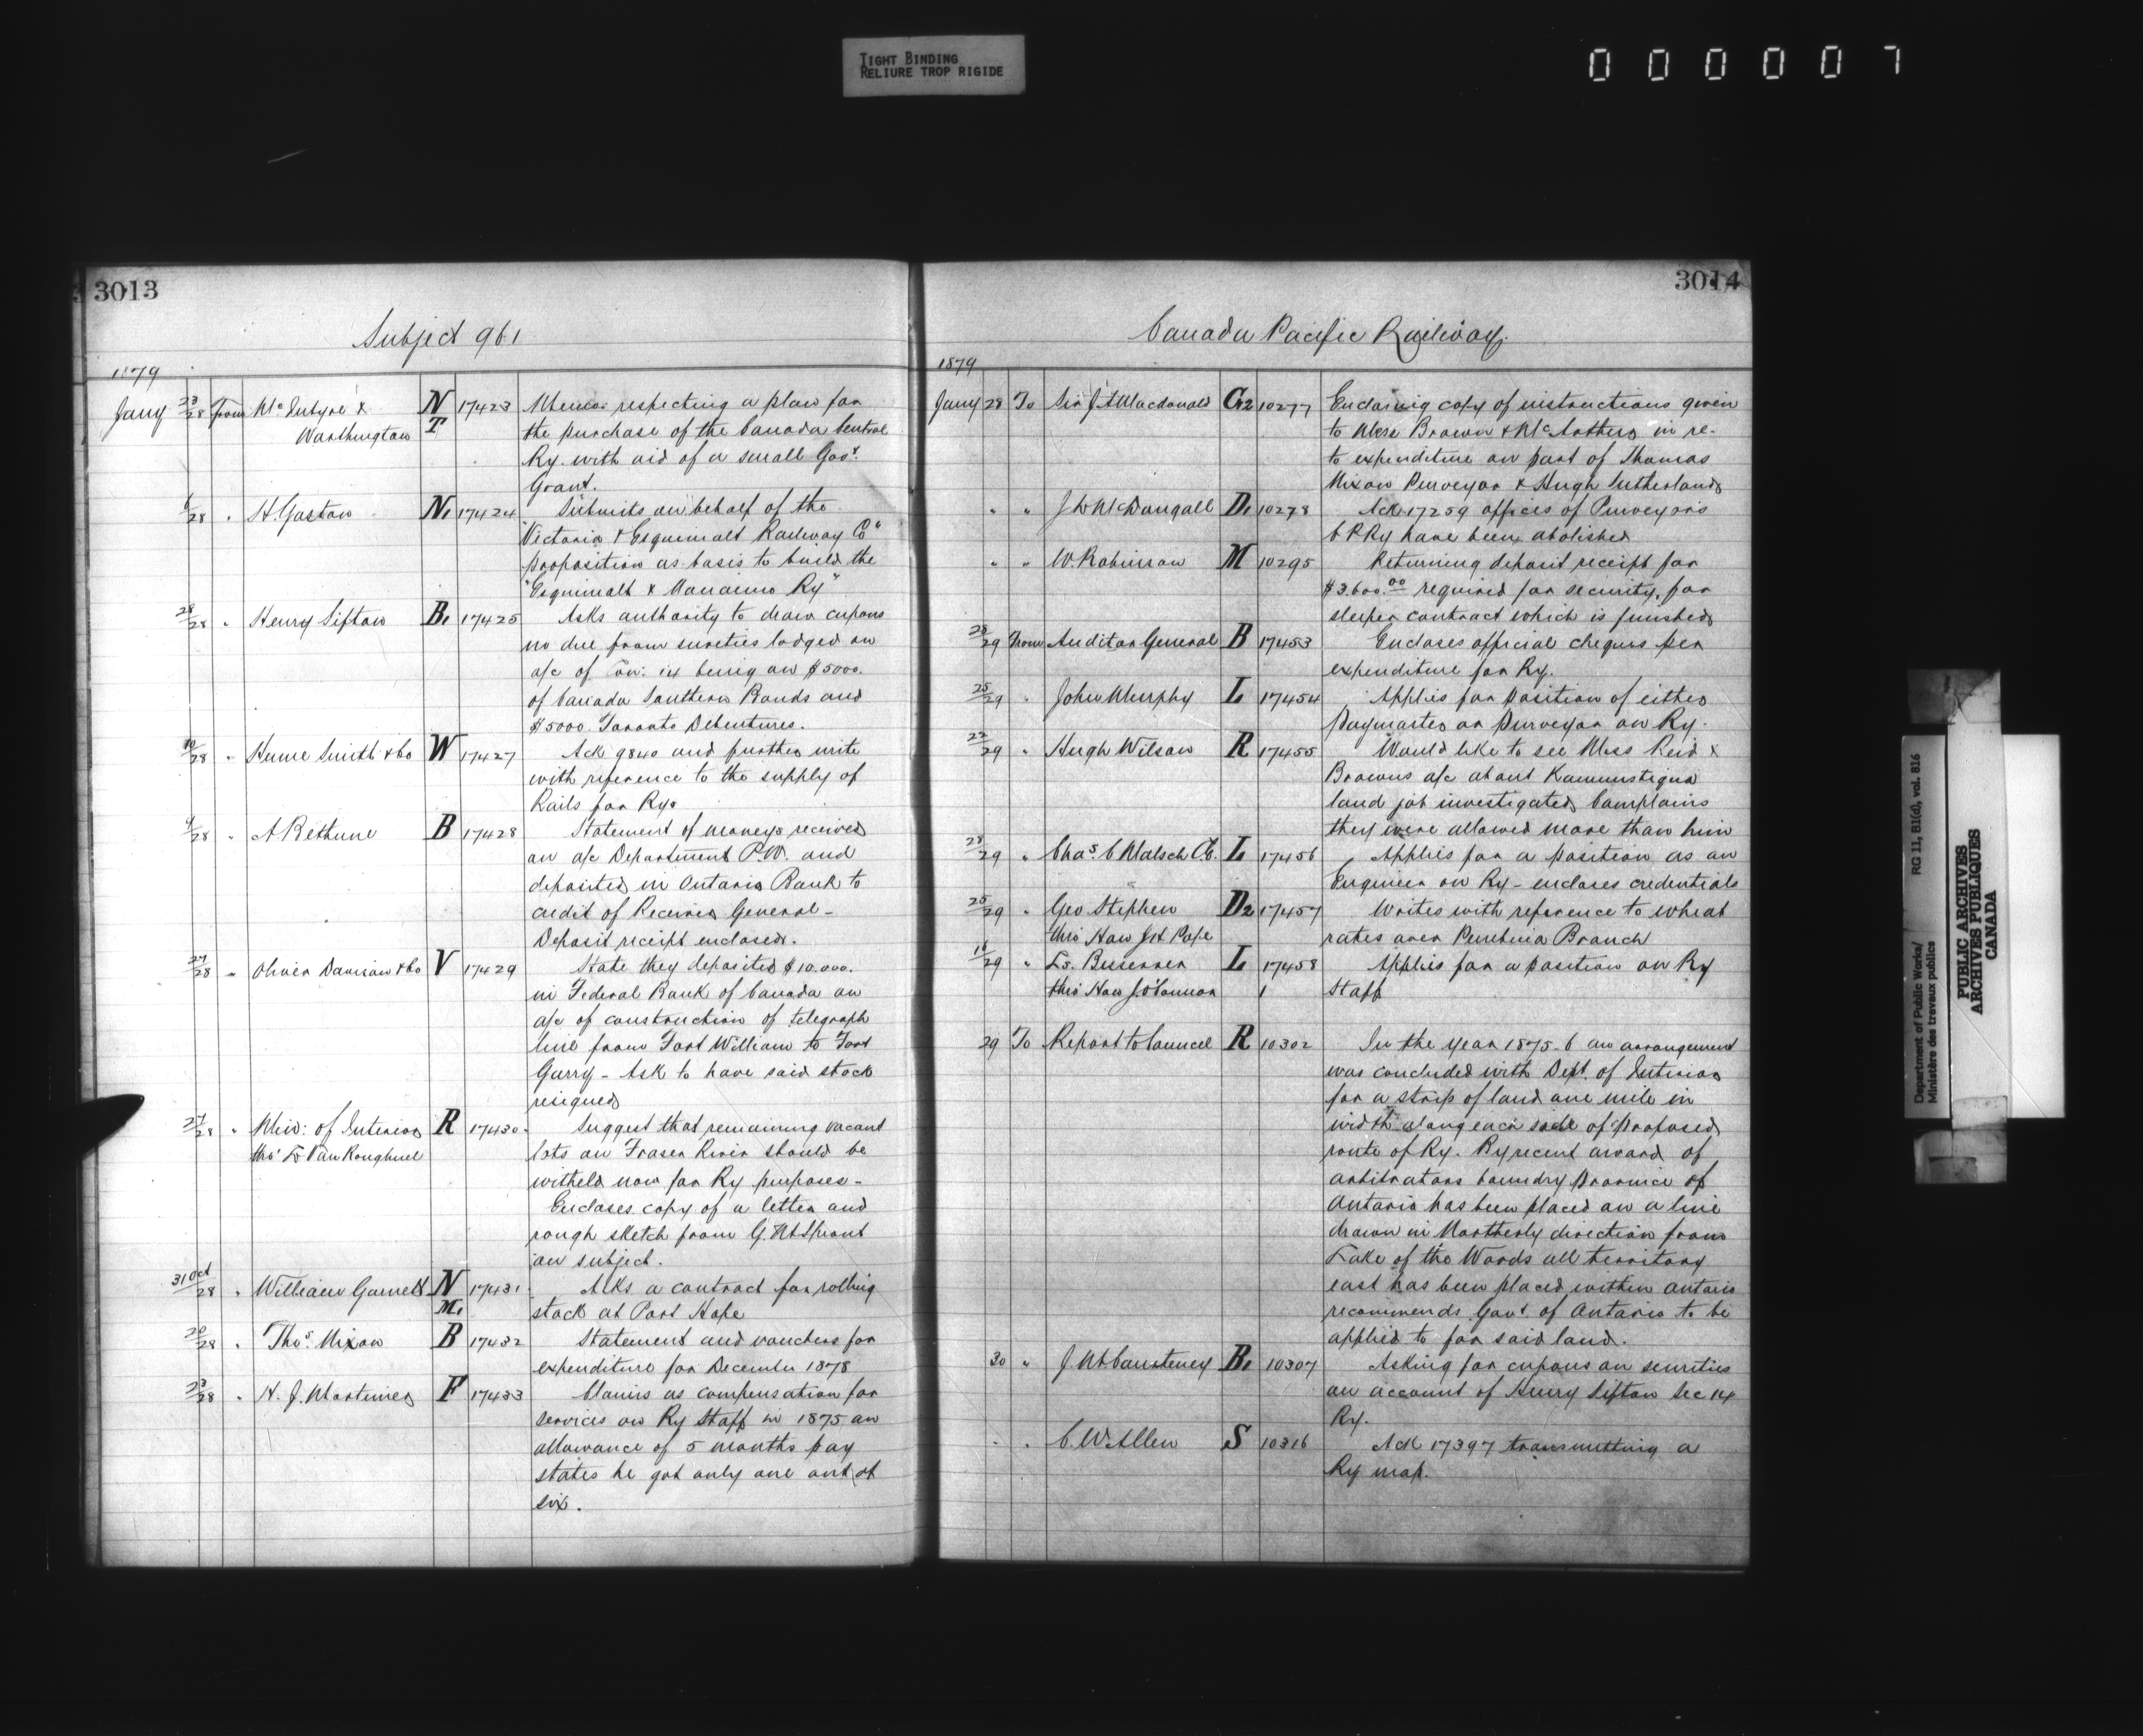 TIGHT BINDING
RELIURE TROP RIGIDE
0 0 0 0 0 7
3013
Subject 961
1879
Jany 23/28 From McIntyre & N 17423 Memo. respecting a plan for
Worthington T the purchase of the Canada Central
Ry. with aid of a small Govt.
Grant.
6/28 " H. Gaston N1 17424 Submits on behalf of the
"Victoria & Esquimalt Railway Co"
proposition as basis to build the
"Esquimalt & Nanaimo Ry"
28/28 " Henry Sifton B1 17425 Asks authority to draw cupons
no due from sureties lodged on
a/c of Con: 14 being on $5000.
of Canada Southern Bonds and
$5000 Toronto Debentures.
10/28 " Hume Smith & Co W 17427 Ack 9840 and further write
with reference to the supply of
Rails for Ry.
4/28 " A Bethune B 17428 Statement of moneys received
on a/c Department P.W. and
deposited in Ontario Bank to
credit of Receiver General -
Deposit receipt enclosed.
27/28 " Oliver Davison & Co V 17429 State they deposited $10.000.
in Federal Bank of Canada on
a/c of construction of telegraph
line from Fort William to Fort
Garry - Ask to have said stock
resigned
27/28 " Min: of Interior R 17430 Suggest that remaining vacant
thro' L VanKoughnet lots on Fraser River should be
witheld now for Ry purposes -
Encloses copy of a letter and
rough sketch from G. M Sproat
on subject.
31 Oct/28 " William Garnett N 17431 Asks a contract for rolling
M1 stock at Port Hope
20/28 " Thos. Nixon B 17432 Statement and vouchers for
expenditure for December 1878
23/28 " H. J. Mortimer F 17433 Claims as compensation for
services on Ry Staff in 1875 an
allowance of 5 months pay
states he got only one out of
six.
3014
Canada Pacific Railway.
1879
Jany 28 To Sir J. A Macdonald G2 10277 Enclosing copy of instructions given
to Messr Brown & McArthur in re-
to expenditure on part of Thomas
Nixon Purveyor & Hugh Sutherland
" " J Lr McDougall D1 10278 Ack 17259 offices of Purveyors
C P Ry have been abolished
" " W. Robinson M 10295 Returning deposit receipt for
$3.600.00 required for security, for
sleeper contract which is finished
28/29 From Auditor General B 17453 Encloses official cheques per
expenditure for Ry.
25/29 " John Murphy L 17454 Applies for position of either
Paymaster or purveyor on Ry.
22/29 " Hugh Wilson R 17455 Would like to see Mess Reid &
Browns a/c about Kaministiqua
land job investigated, Complains
they were allowed more than him
28/29 " Chas. C Malsch C.E. L 17456 Applies for a position as an
Engineer on Ry - encloses credentials
25/29 " Geo Stephen D2 17457 Writes with reference to wheat
thro Hon J H Pope rates over Pembina Branch
16/29 " Ls. L 17458 Applies for a position on Ry
thro Hon J. O'Connor 1 Staff
29 To Report to Council R 10302 In the year 1875-6 an arrangement
was concluded with Dept. of Interior
for a strip of land one mile in
width along each side of proposed
route of Ry. By recent award of
arbitrators boundry Province of
Ontario has been placed on a line
drawn in Northerly direction from
Lake of the Woods all territory
east has been placed within Ontario
recommends Govt. of Ontario to be
applied to for said land.
30 " J. M Courteney B1 10307 Asking for cupons on securities
on account of Henry Sifton Sec 14
Ry.
" " C. W Allen S 10316 Ack 17397 transmitting a
Ry map.
Department of Public Works/
Ministère des travaux publics
RG 11, B1(d), vol. 816
PUBLIC ARCHIVES
ARCHIVES PUBLIQUES
CANADA